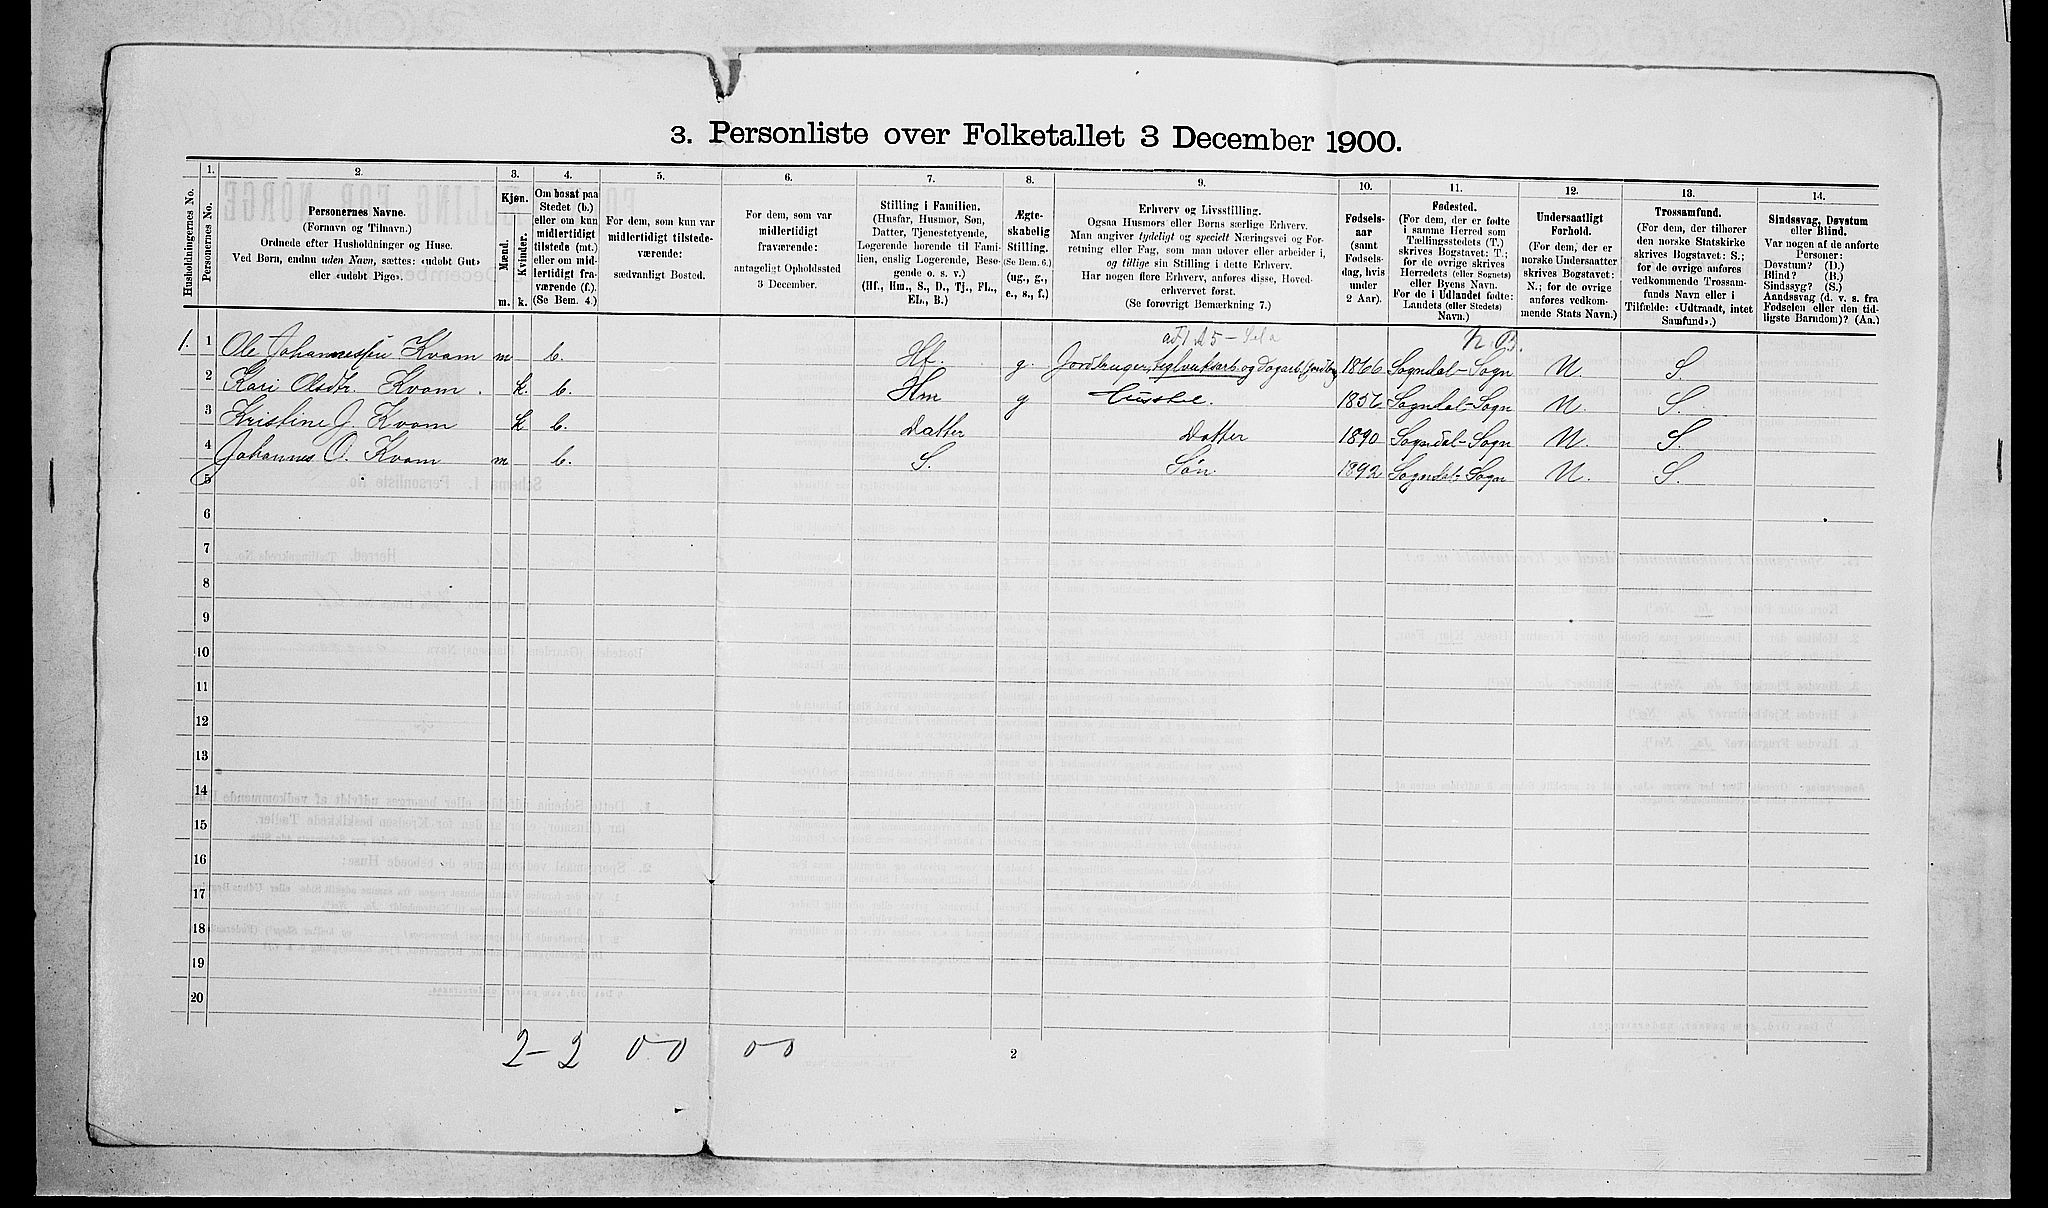 3. Personliste over Folketallet 3 December 1900.
Husholdningernes No.
1.
Personernes No.
2.
Personernes Navne.
(Fornavn og Tilnavn.)
Ordnede efter Husholdninger og Huse.
Ved Børn, endnu uden Navn, sættes: «udøbt Gut»
eller «udøbt Pige».
3.
Kjøn.
Mænd.
Kvinder.
m. k.
4.
Om bosat paa
Stedet (b.)
eller om kun
midlertidigt
tilstede (mt.)
eller om mid-
lertidigt fra-
værende (f.).
(Se Bem. 4.)
5.
For dem, som kun var
midlertidigt tilstede-
værende:
sædvanligt Bosted.
6.
For dem, som var
midlertidigt
fraværende:
antageligt Opholdssted
3 December.
7.
Stilling i Familien.
(Husfar, Husmor, Søn,
Datter, Tjenestetyende,
Logerende hørende til Fami-
lien, enslig Logerende, Besø-
gende o. s. v.)
(Hf., Hm., S., D., Tj., FL.,
EL., B.)
8.
Ægte-
skabelig
Stilling.
(Se Bem. 6.)
(ug., g.,
e., s., f.)
9.
Erhverv og Livsstilling.
Ogsaa Husmors eller Børns særlige Erhverv.
Man angiver tydeligt og specielt Næringsvei og For-
retning eller Fag, som man udøver eller arbeider i,
og tillige sin Stilling i dette Erhverv.
Har nogen flere Erhverv, anføres disse, Hoved-
erhvervet først.
(Se forøvrigt Bemærkning 7.)
10.
Fødsels-
aar
(samt
Fødsels-
dag, hvis
under
2 Aar).
11.
Fødested.
(For dem, der er fødte
i samme Herred som
Tællingsstedets (T.)
skrives Bogstavet: T.;
for de øvrige skrives
Herredets (eller Sognets)
eller Byens Navn.
For de i Udlandet fødte:
Landets (eller Stedets)
Navn.)
12.
Undersaatligt
Forhold.
(For dem, der er
norske Undersaatter
skrives Bogstavet:
N.; for de øvrige
anføres vedkom-
mende Stats Navn.)
13.
Trossamfund.
(For dem, der tilhører
den norske Statskirke
skrives Bogstavet: S.;
for de øvrige anføres
vedkommende Trossam-
funds Navn eller i
Tilfælde: «Udtraadt, intet
Samfund».)
14.
Sindssvag, Døvstum
eller Blind.
Var nogen af de anførte
Personer:
Døvstum? (D.)
Blind? (B.)
Sindssyg? (S.)
Aandssvag (d. v. s. fra
Fødselen eller den tid-
ligste Barndom)? (Aa.)
1. 1 Ole Johannessen Kvam m b. Hf. g. Jordbruger, teglverksarb. og dagarb. 1866 Sogndal-Sogn N. S.
2 Kari Olsdtr. Kvam. k. b. Hm g Husstel. Sogndal-Sogn N. S.
3 Kristine J. Kvam k b. Datter Datter 1890 Sogndal-Sogn N. S.
4 Johannes O. Kvam m b. S. Søn. 1892 Sogndal-Sogn N. S.
5
6
7
8
9
10
11
12
13
14
15
16
17
18
19
20
2-2 0-0 0-0
2